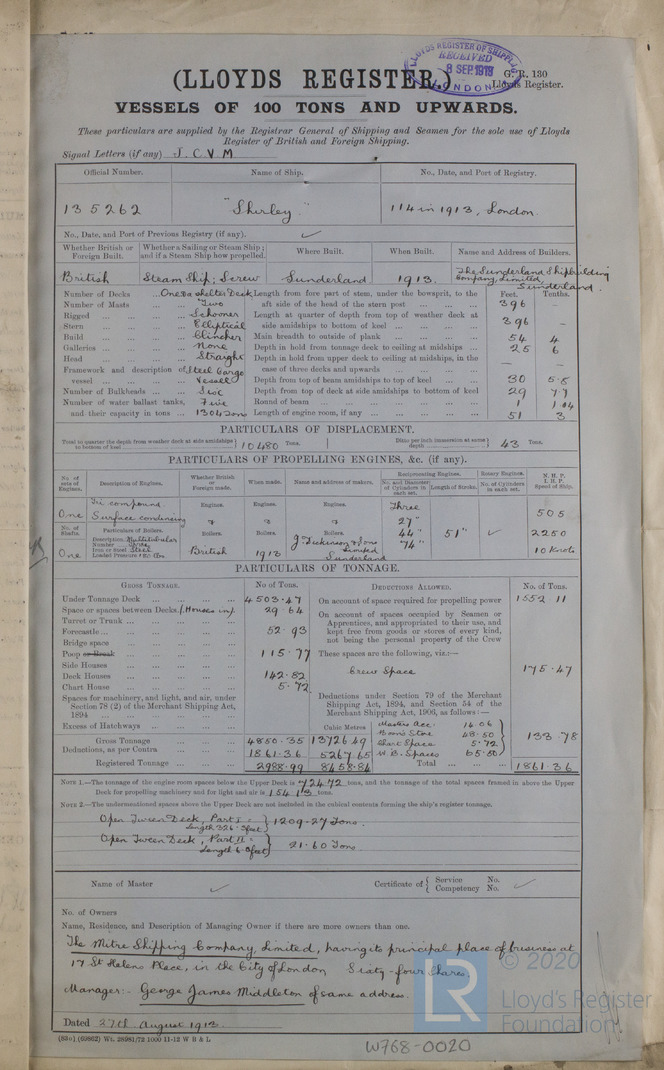 LLOYDS REGISTER OF SHIPPING
RECEIVED
8 SEP 1913
LONDON
(LLOYDS REGISTER.)
G. R. 130
Lloyds Register.
VESSELS OF 100 TONS AND UPWARDS.
These particulars are supplied by the Registrar General of Shipping and Seamen for the sole use of Lloyds
Register of British and Foreign Shipping.
Signal Letters (if any) J. C. V. M
Official Number. Name of Ship. No., Date, and Port of Registry.
135262 "Shirley." 114 in 1913, London.
No., Date, and Port of Previous Registry (if any).
Whether British or Foreign Built. Whether a Sailing or Steam Ship; and if a Steam Ship how propelled. Where Built. When Built. Name and Address of Builders.
British Steam Ship; Screw Sunderland 1913. The Sunderland Shipbuilding Company, Limited, Sunderland.
Feet. Tenths.
Number of Decks ... One & a shelter Deck Length from fore part of stem, under the bowsprit, to the
Number of Masts ... Two aft side of the head of the stern post ... 396 –
Rigged ... Schooner Length at quarter of depth from top of weather deck at
Stern ... Elliptical side amidships to bottom of keel ... 396 –
Build ... Clincher Main breadth to outside of plank ... 54 4
Galleries ... None Depth in hold from tonnage deck to ceiling at midships ... 25 6
Head ... Straight Depth in hold from upper deck to ceiling at midships, in the
Framework and description of Steel Cargo case of three decks and upwards ... – –
vessel ... Vessel Depth from top of beam amidships to top of keel ... 30 5·8
Number of Bulkheads ... Six Depth from top of deck at side amidships to bottom of keel 29 77
Number of water ballast tanks, Five Round of beam ... 1 1·04
and their capacity in tons ... 1304 Tons Length of engine room, if any ... 51 3
PARTICULARS OF DISPLACEMENT.
Total to quarter the depth from weather deck at side amidships to bottom of keel 10480 Tons. Ditto per inch immersion at same depth 43 Tons.
PARTICULARS OF PROPELLING ENGINES, &c. (if any).
No. of sets of Engines. Description of Engines. Whether British or Foreign made. When made. Name and address of makers. Reciprocating Engines. Rotary Engines. N. H. P. I. H. P. Speed of Ship.
No. and Diameter of Cylinders in each set. Length of Stroke. No. of Cylinders in each set.
Tri compound. Engines. Engines. Engines. Three
One Surface condensing 27" 505
No. of Shafts. Particulars of Boilers. Boilers. Boilers. Boilers. 44" 51" 2250
Description Multitubular
Number Three
Iron or Steel Steel
Loaded Pressure 180 lbs
One British 1913 J. Dickinson & Sons Limited Sunderland 74" 10 Knots
PARTICULARS OF TONNAGE.
GROSS TONNAGE. No of Tons. DEDUCTIONS ALLOWED. No. of Tons.
Under Tonnage Deck ... 4503·47 On account of space required for propelling power 1552 11
Space or spaces between Decks 29·64 On account of spaces occupied by Seamen or
Turret or Trunk ... Apprentices, and appropriated to their use, and
Forecastle ... 52·93 kept free from goods or stores of every kind,
Bridge space ... not being the personal property of the Crew
Poop or Break ... 115·77 These spaces are the following, viz:—
Side Houses ... Crew Space 175·47
Deck Houses ... 142·82
Chart House ... 5·72
Spaces for machinery, and light, and air, under Deductions under Section 79 of the Merchant
Section 78 (2) of the Merchant Shipping Act, Shipping Act, 1894, and Section 54 of the
1894 ... Merchant Shipping Act, 1906, as follows:—
Excess of Hatchways ... Cubic Metres Masters acc: 14·06
Bosn's Store 48·50
Gross Tonnage ... 4850·35 13726·49 Chart Space 5·72 133·78
Deductions, as per Contra 1861·36 5267·65 W.B. Spaces 65·50
Registered Tonnage ... 2988·99 8458·84 Total ... 1861·36
NOTE 1.—The tonnage of the engine room spaces below the Upper Deck is 724·72 tons, and the tonnage of the total spaces framed in above the Upper
Deck for propelling machinery and for light and air is 154·13 tons.
NOTE 2.—The undermentioned spaces above the Upper Deck are not included in the cubical contents forming the ship's register tonnage.
Open Tween Deck, Part I = Length 326·3 feet } 1209·27 Tons.
Open Tween Deck, Part II = Length 6·0 feet } 21·60 Tons
Name of Master Certificate of { Service No. Competency No.
No. of Owners
Name, Residence, and Description of Managing Owner if there are more owners than one.
The Mitre Shipping Company, Limited, having its principal place of business at
17 St Helens Place, in the City of London Sixty-four Shares.
Manager:- George James Middleton of same address.
Dated 27th August 1913.
(63o) (69862) Wt. 28981/72 1000 11-12 W B & L
W768-0020
© 2020
LR
Lloyd's Register
Foundation